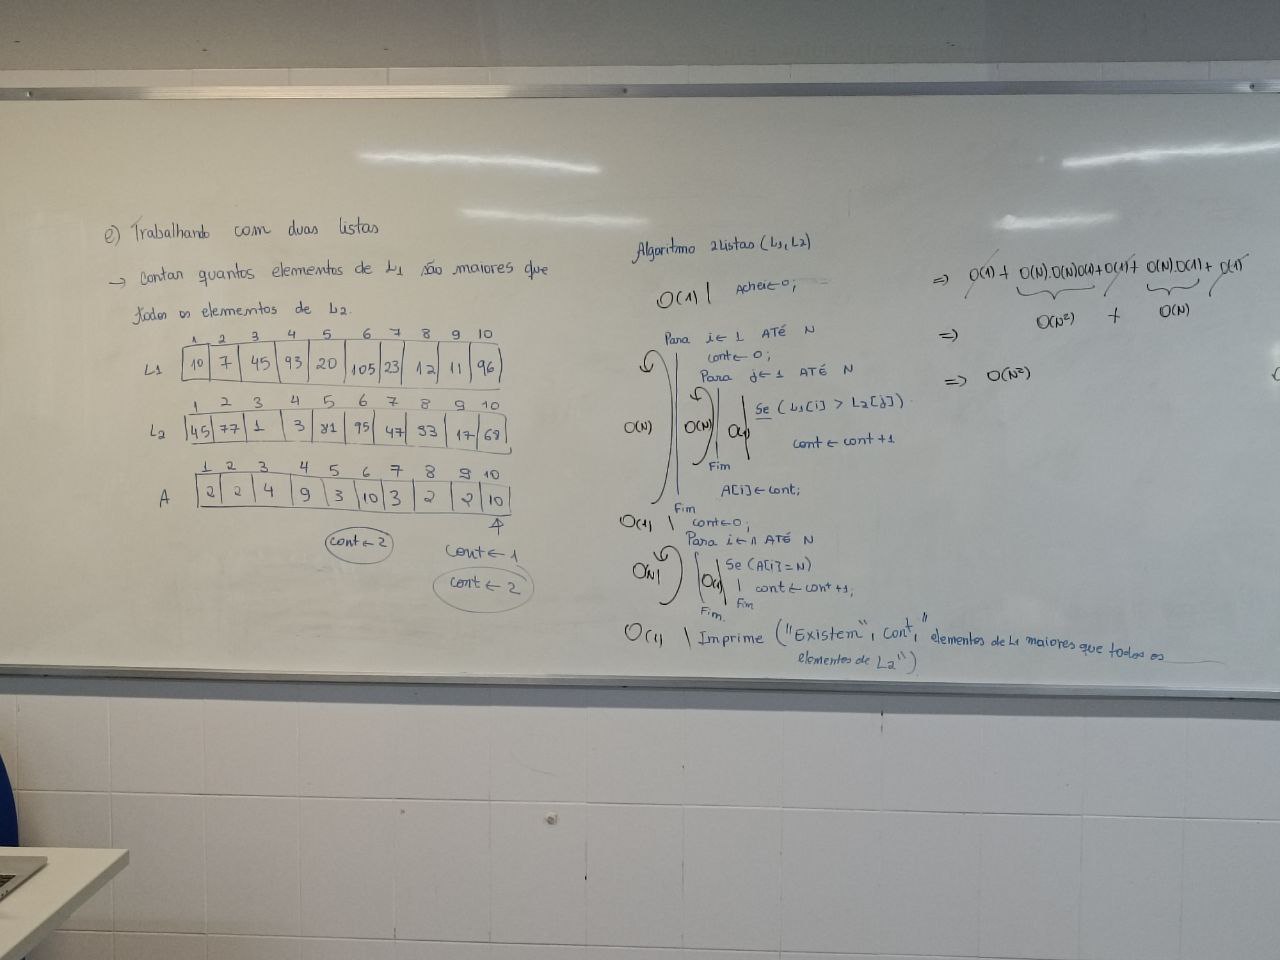 e) Trabalhando com duas listas
→ Contar quantos elementos de L1 são maiores que
todos os elementos de L2.
1 2 3 4 5 6 7 8 9 10
L1 10 7 45 93 20 105 23 12 11 96
1 2 3 4 5 6 7 8 9 10
L2 45 77 1 3 81 95 47 93 17 68
1 2 3 4 5 6 7 8 9 10
A 2 2 4 9 3 10 3 2 2 10
cont ← 2
cont ← 1
cont ← 2
Algoritmo 2Listas (L1, L2)
O(1) | Achei ← 0;
Para i ← 1 ATÉ N
cont ← 0;
Para j ← 1 ATÉ N
O(N) O(N) O(1) Se (L1[i] > L2[j])
cont ← cont + 1
Fim
A[i] ← cont;
Fim
O(1) | cont ← 0;
Para i ← 1 ATÉ N
O(N) O(1) Se (A[i] = N)
| cont ← cont + 1;
Fim
Fim.
O(1) | Imprime ("Existem", cont, " elementos de L1 maiores que todos os
elementos de L2")
⇒ O(1) + O(N).O(N)O(1) + O(1) + O(N).O(1) + O(1)
⇒ O(N²) + O(N)
⇒ O(N²)